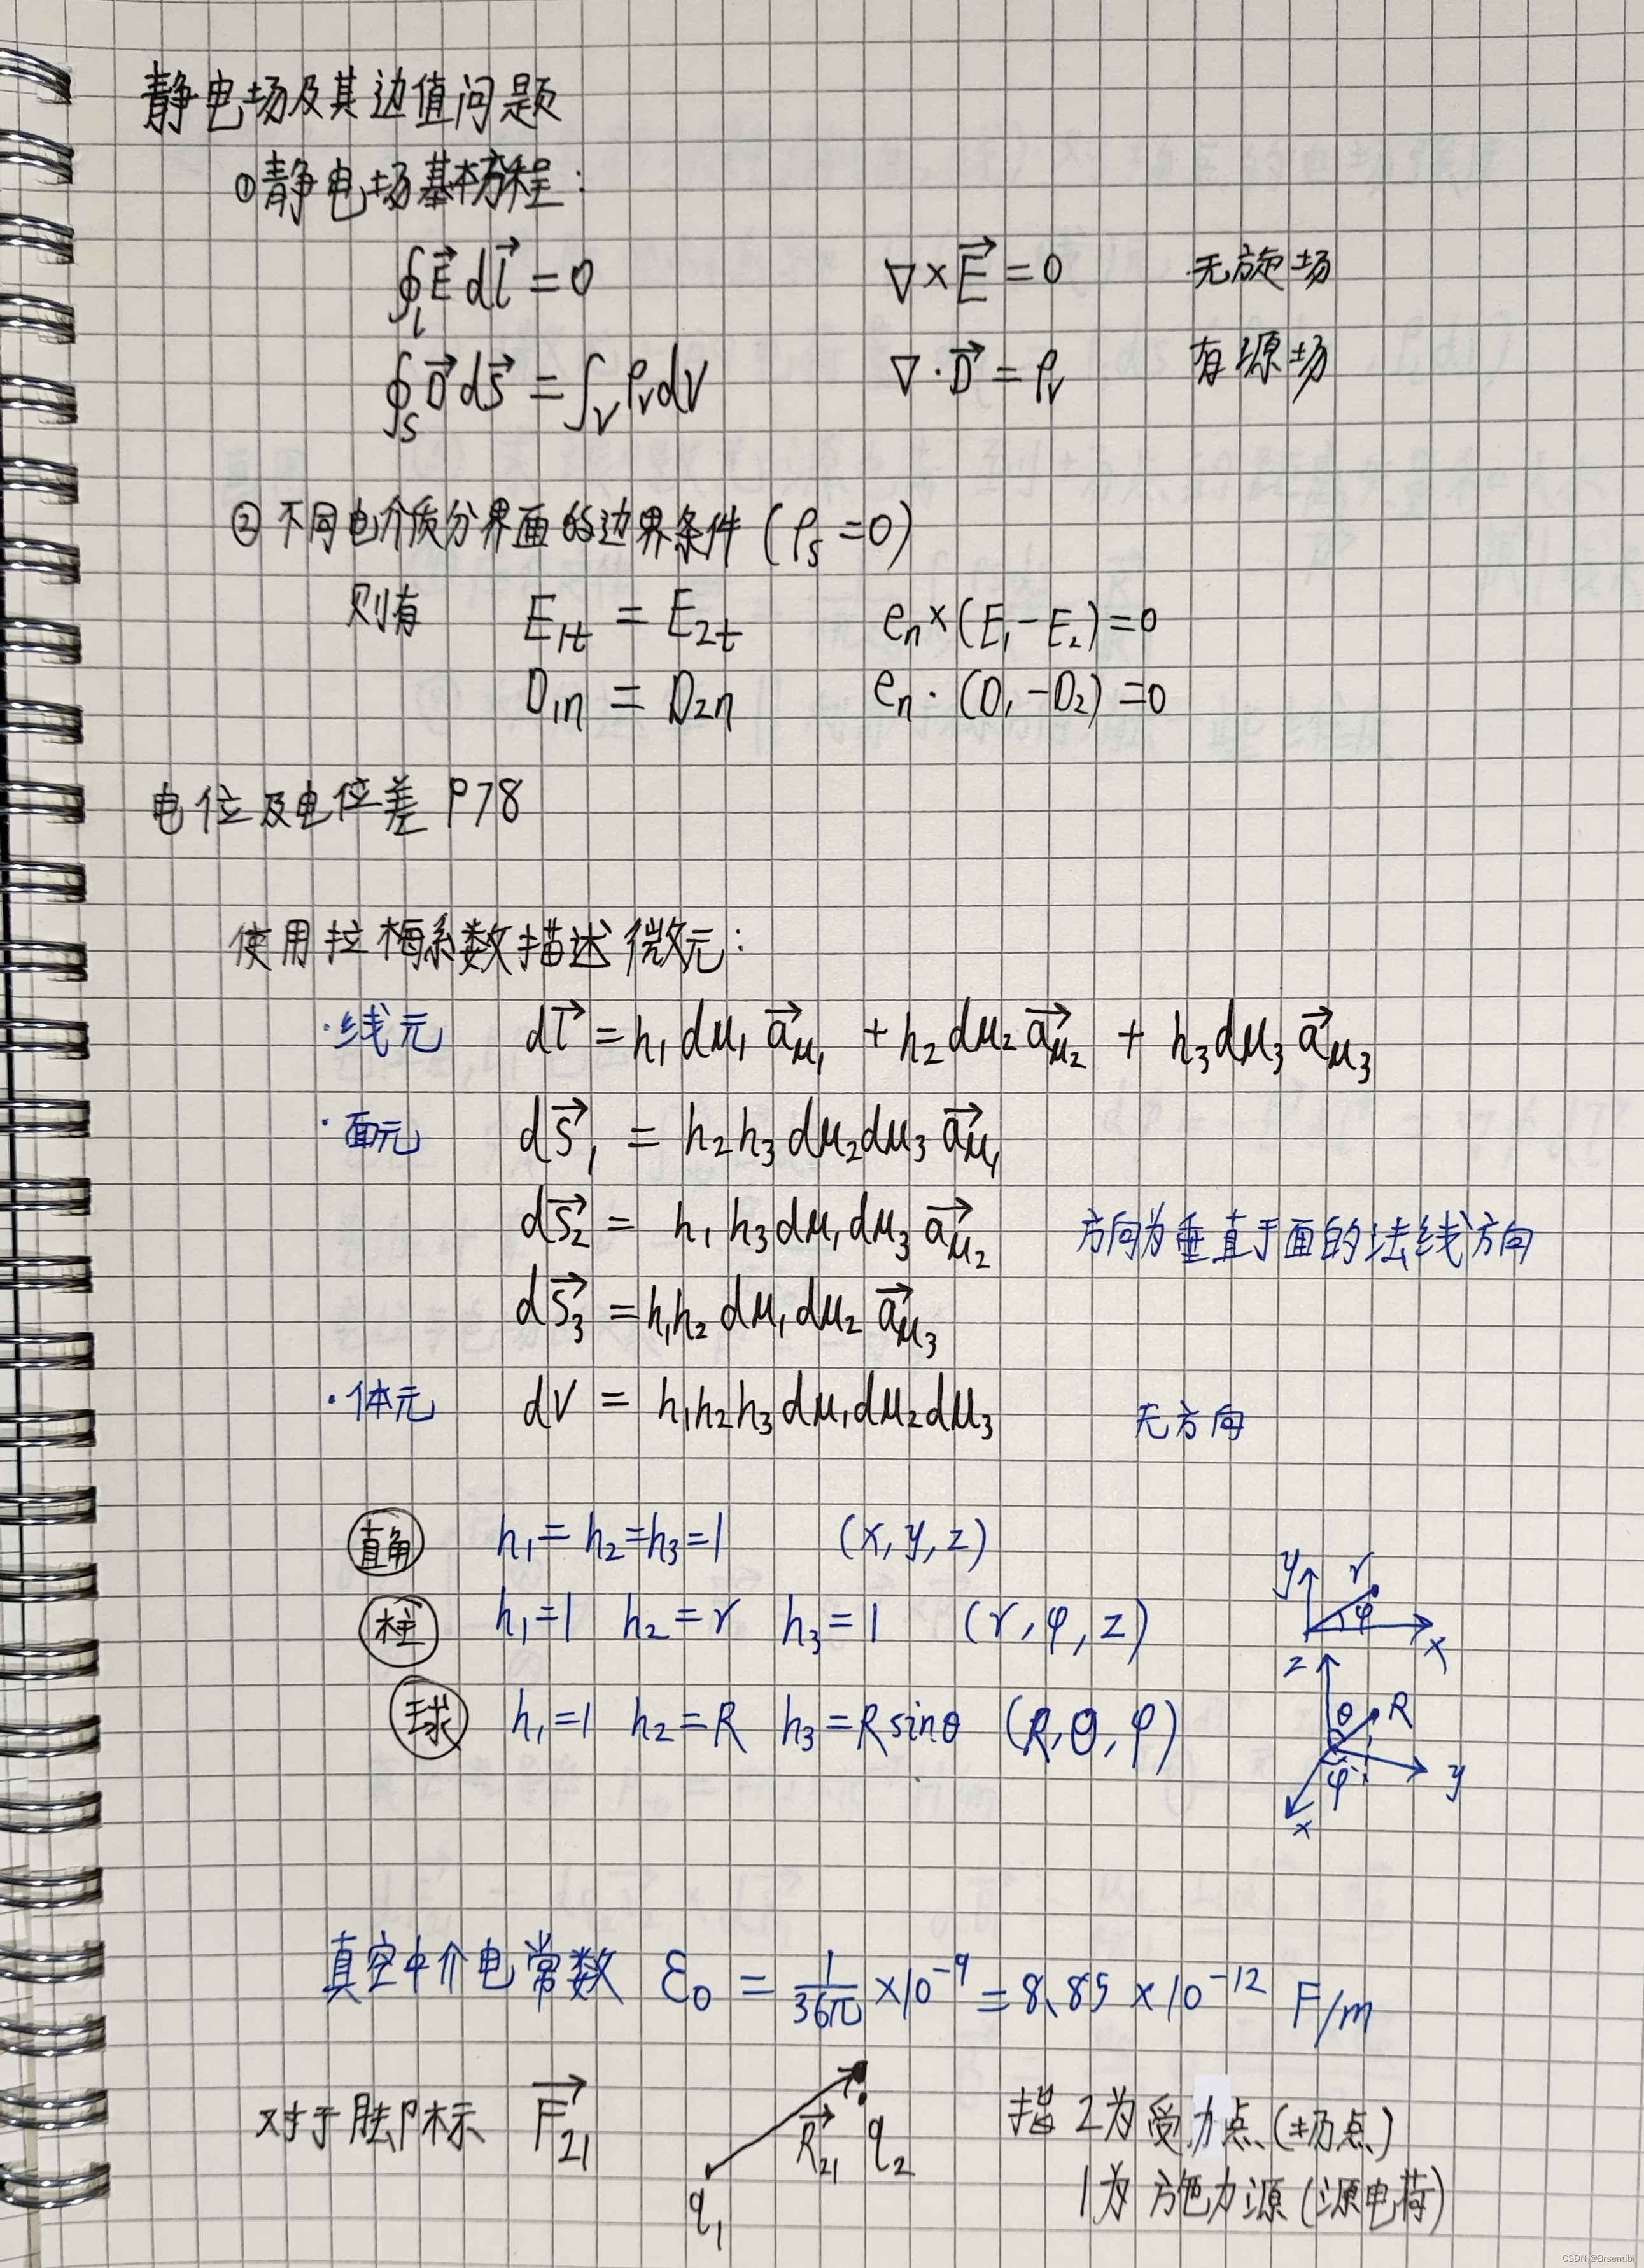 静电场及其边值问题
①静电场基本方程：
∮_l E⃗ dl⃗ = 0 ∇×E⃗ = 0 无旋场
∮_S D⃗ dS⃗ = ∫_V ρ_v dV ∇·D⃗ = ρ_v 有源场
②不同电介质分界面的边界条件（ρ_s = 0）
则有 E_1t = E_2t e_n×(E₁-E₂)=0
D_1n = D_2n e_n·(D₁-D₂)=0
电位及电位差 P78
使用拉梅系数描述微元：
·线元 dl⃗ = h₁dμ₁a⃗_μ₁ + h₂dμ₂a⃗_μ₂ + h₃dμ₃a⃗_μ₃
·面元 dS⃗₁ = h₂h₃dμ₂dμ₃a⃗_μ₁
dS⃗₂ = h₁h₃dμ₁dμ₃a⃗_μ₂ 方向为垂直于面的法线方向
dS⃗₃ = h₁h₂dμ₁dμ₂a⃗_μ₃
·体元 dV = h₁h₂h₃dμ₁dμ₂dμ₃ 无方向
直角 h₁=h₂=h₃=1 (x,y,z)
y r φ x
柱 h₁=1 h₂=r h₃=1 (r,φ,z)
球 h₁=1 h₂=R h₃=Rsinθ (R,θ,φ)
z θ R φ y x
真空中介电常数 ε₀ = 1/36π ×10⁻⁹ = 8.85×10⁻¹² F/m
对于脚标 F⃗₂₁ R⃗₂₁ q₂ 指2为受力点（场点）
q₁ 1为施力源（源电荷）
CSDN @Brsentibi